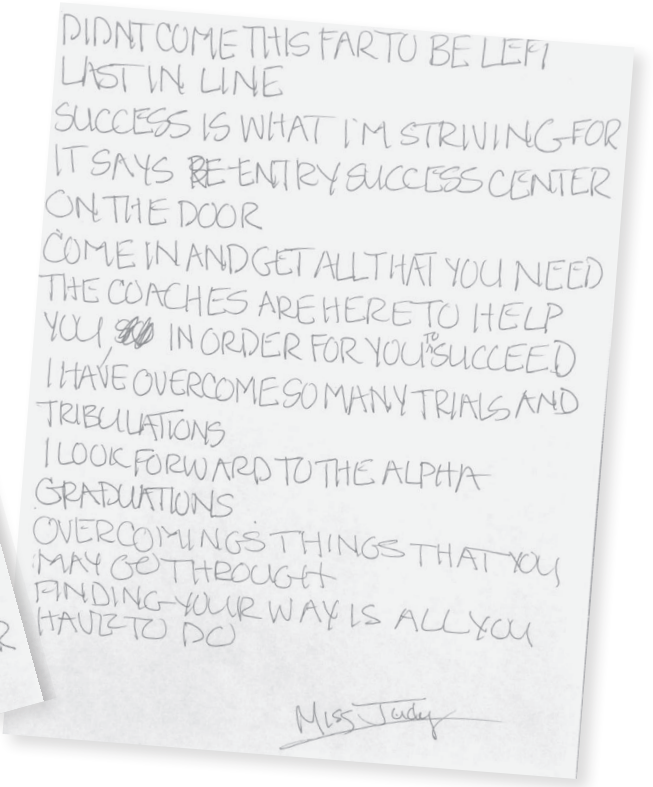 DIDNT COME THIS FAR TO BE LEFT
LAST IN LINE
SUCCESS IS WHAT I'M STRIVING FOR
IT SAYS RE-ENTRY SUCCESS CENTER
ON THE DOOR
COME IN AND GET ALL THAT YOU NEED
THE COACHES ARE HERE TO HELP
YOU IN ORDER FOR YOU TO SUCCEED
I HAVE OVERCOME SO MANY TRIALS AND
TRIBULATIONS
I LOOK FORWARD TO THE ALPHA
GRADUATIONS
OVERCOMINGS THINGS THAT YOU
MAY GO THROUGH
FINDING YOUR WAY IS ALL YOU
HAVE TO DO
Miss Judy